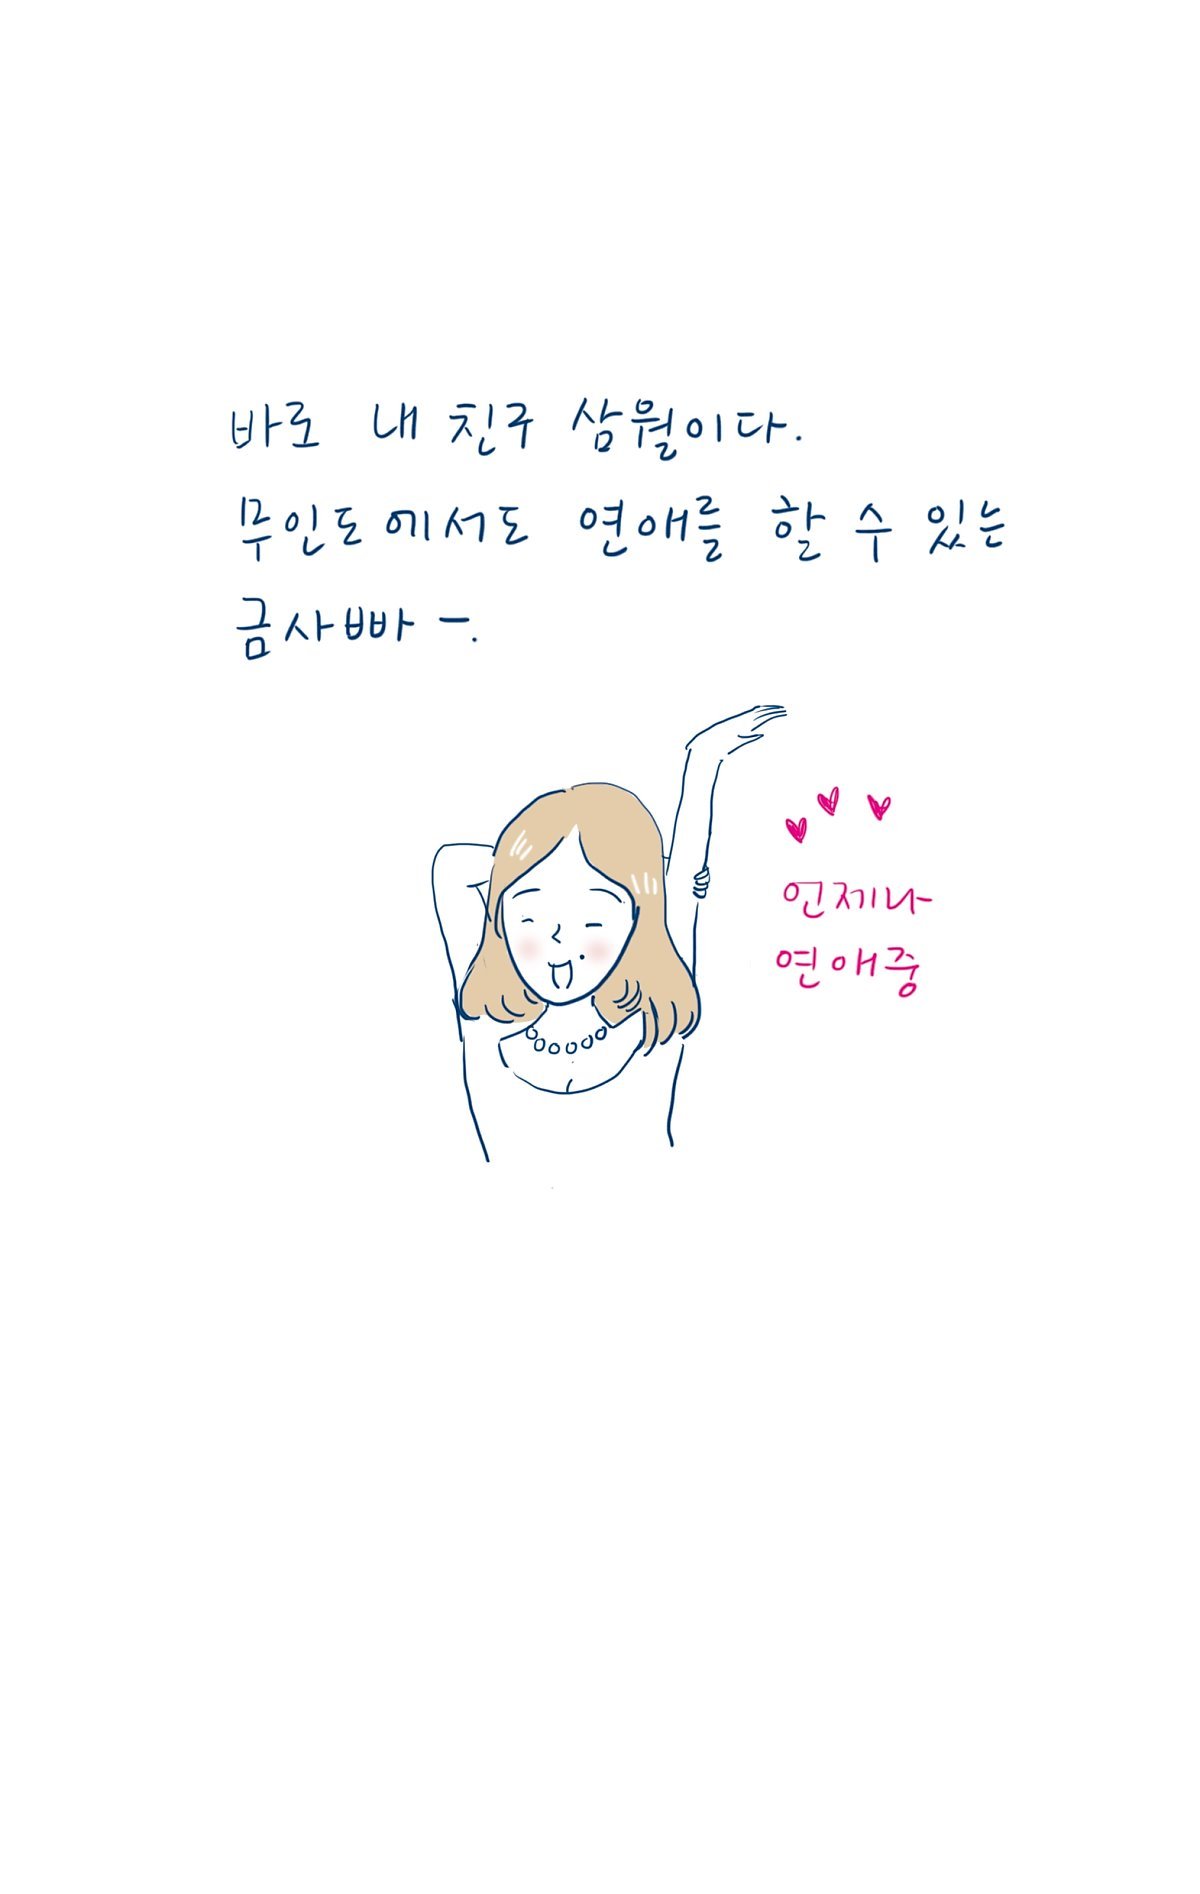 바로 내 친구 삼월이다.
무인도에서도 연애를 할 수 있는
금사빠 -.
언제나
연애중